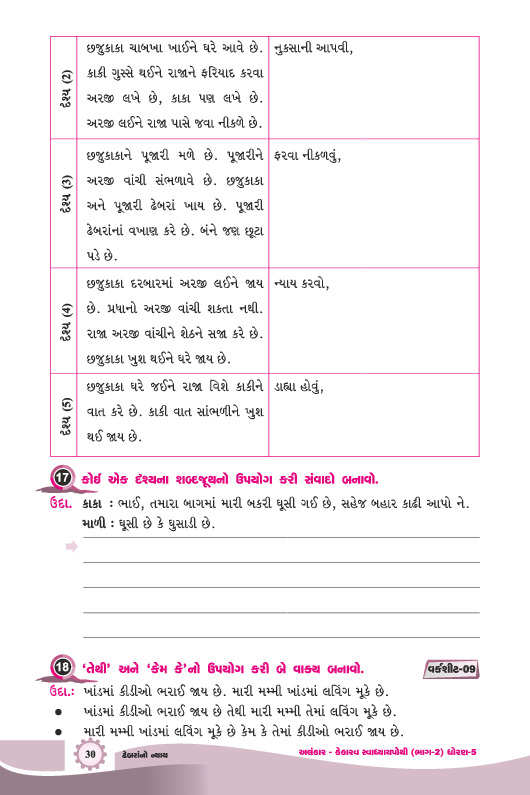 દૃશ્ય (2)
છજુકાકા ચાબખા ખાઈને ઘરે આવે છે.
કાકી ગુસ્સે થઈને રાજાને ફરિયાદ કરવા
અરજી લખે છે, કાકા પણ લખે છે.
અરજી લઈને રાજા પાસે જવા નીકળે છે.
નુકસાની આપવી,
દૃશ્ય (3)
છજુકાકાને પૂજારી મળે છે. પૂજારીને
અરજી વાંચી સંભળાવે છે. છજુકાકા
અને પૂજારી ઢેબરાં ખાય છે. પૂજારી
ઢેબરાંનાં વખાણ કરે છે. બંને જણ છૂટા
પડે છે.
ફરવા નીકળવું,
દૃશ્ય (4)
છજુકાકા દરબારમાં અરજી લઈને જાય
છે. પ્રધાનો અરજી વાંચી શકતા નથી.
રાજા અરજી વાંચીને શેઠને સજા કરે છે.
છજુકાકા ખુશ થઈને ઘરે જાય છે.
ન્યાય કરવો,
દૃશ્ય (5)
છજુકાકા ઘરે જઈને રાજા વિશે કાકીને
વાત કરે છે. કાકી વાત સાંભળીને ખુશ
થઈ જાય છે.
ડાહ્યા હોવું,
17 કોઈ એક દૃશ્યના શબ્દજૂથનો ઉપયોગ કરી સંવાદો બનાવો.
ઉદા. કાકા : ભાઈ, તમારા બાગમાં મારી બકરી ઘૂસી ગઈ છે, સહેજ બહાર કાઢી આપો ને.
માળી : ઘૂસી છે કે ઘુસાડી છે.
18 ‘તેથી’ અને ‘કેમ કે’નો ઉપયોગ કરી બે વાક્ય બનાવો.
વર્કશીટ-09
ઉદા.: ખાંડમાં કીડીઓ ભરાઈ જાય છે. મારી મમ્મી ખાંડમાં લવિંગ મૂકે છે.
● ખાંડમાં કીડીઓ ભરાઈ જાય છે તેથી મારી મમ્મી તેમાં લવિંગ મૂકે છે.
● મારી મમ્મી ખાંડમાં લવિંગ મૂકે છે કેમ કે તેમાં કીડીઓ ભરાઈ જાય છે.
30 ઢેબરાંનો ન્યાય
અલંકાર - કેકારવ સ્વાધ્યાયપોથી (ભાગ-2) ધોરણ-5